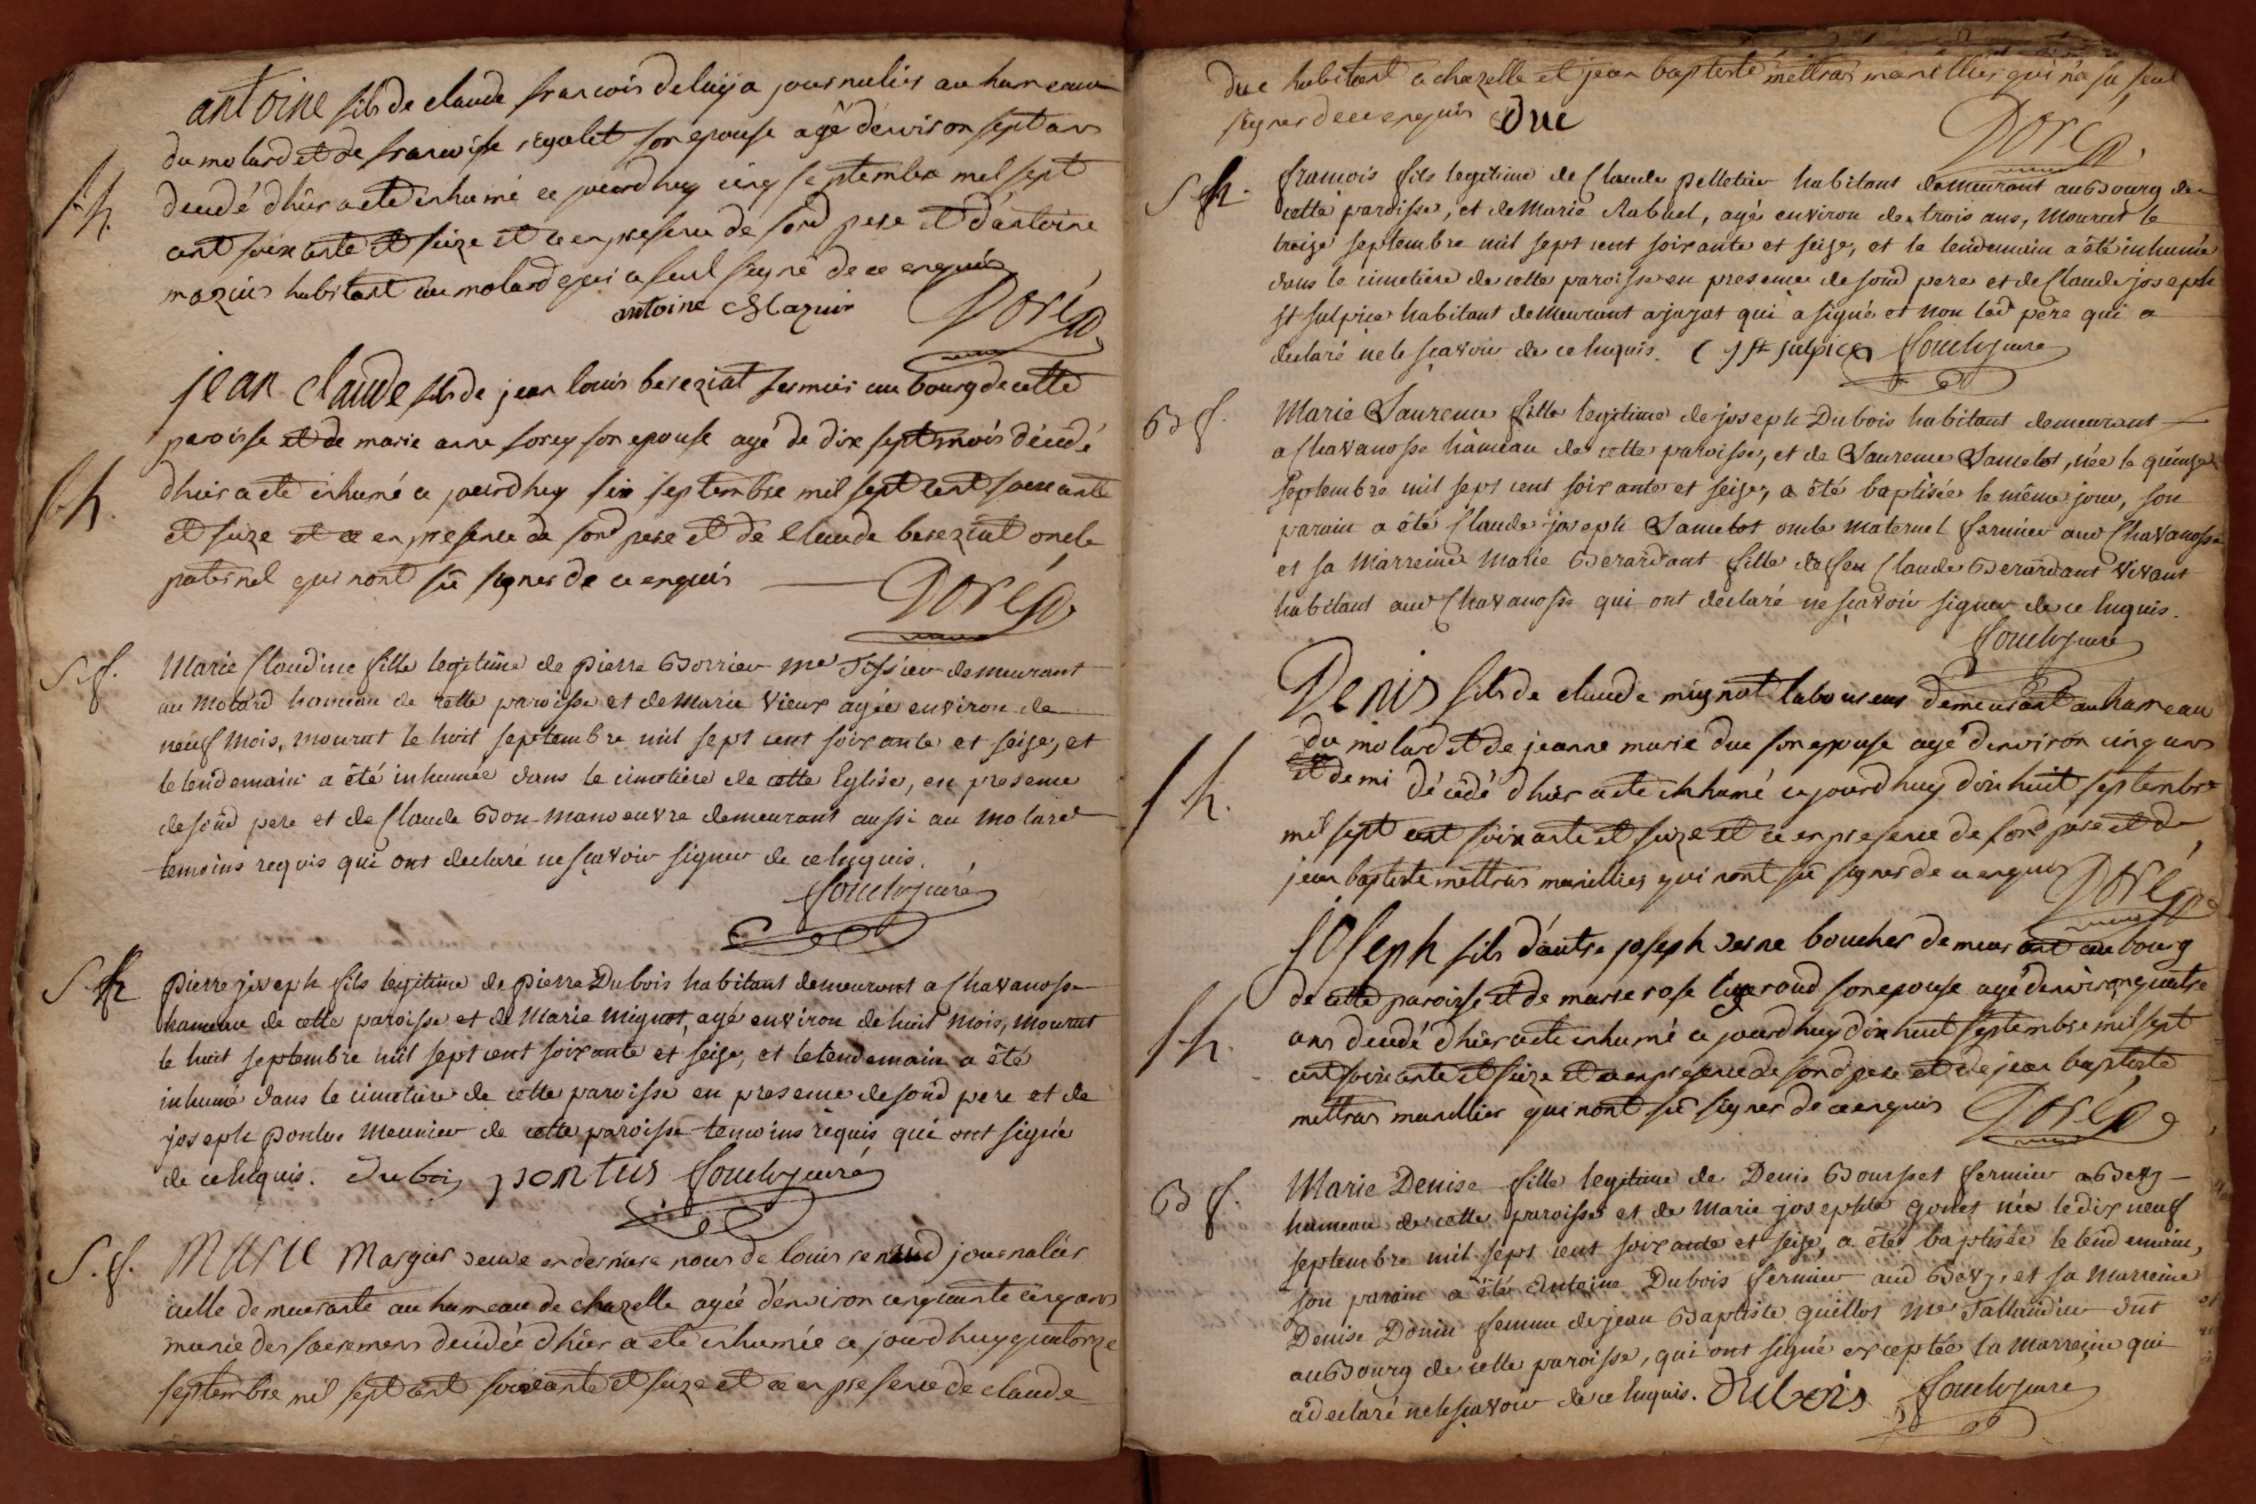 antoine fils de claude francois deluya journalier au hameau
du molard et de francoise rigolet son epouse agé d'environ sept ans
S. h. decedé d'hier a eté inhumé ce jourd'huy cinq septembre mil sept
cent soixante et seize et ce en presence de sond pere et d'antoine
mazuir habitant au molard qui a seul signé de ce enquis
antoine Mazuir Doré
jean claude fils de jean louis bereziat fermier au bourg de cette
paroisse et de marie anne sorey son epouse agé de dix sept mois décedé
S. h. d'hier a eté inhumé ce jourd'huy six septembre mil sept cent soixante
et seize et ce en presence de sond pere et de claude bereziat oncle
paternel qui n'ont sû signer de ce enquis Doré
S. f. Marie Claudine fille legitime de pierre Borrier Me Tissier demeurant
au Molard hameau de cette paroisse et de Marie Vieux agée environ de
neuf mois, mourut le huit septembre mil sept cent soixante et seize, et
le lendemain a été inhumée dans le cimetiere de cette Eglise, en presence
de sond pere et de Claude Bon manoeuvre demeurant aussi au Molard
temoins requis qui ont declaré ne sçavoir signer de ce Enquis.
curé
S. h. pierre joseph fils legitime de pierre Dubois habitant demeurant a Chavanosse
hameau de cette paroisse et de Marie Mignot, agé environ de huit mois, mourut
le huit septembre mil sept cent soixante et seize, et le lendemain a été
inhumé dans le cimetiere de cette paroisse en presence de sond pere et de
joseph pontus Meunier de cette paroisse temoins requis qui ont signé
de ce Enquis. Dubois pontus curé
S. f. Marie Margier veuve en derniere nopces de louis renaud journalier
icelle demeurante au hameau de chazelle agée d'environ cinquante cinq ans
munie des sacremens decédée d'hier a eté inhumée ce jourd'huy quatorze
septembre mil sept cent soixante et seize et ce en presence de claude
duc habitant a chazelle et jean baptiste mettras marillier qui n'a su seul
signer de ce enquis Duc
Doré
S h. francois fils legitime de Claude pelletier habitant demeurant au Bourg de
cette paroisse, et de Marie Rabuel, agé environ de trois ans, Mourut le
treize septembre mil sept cent soixante et seize, et le lendemain a été inhumé
dans le cimetiere de cette paroisse en presence de sond pere et de Claude joseph
St sulpice habitant demeurant a jayat qui a signé et non led pere qui a
declaré ne le sçavoir de ce Enquis. C J St sulpice curé
B f. Marie Laurence fille legitime de joseph Dubois habitant demeurant
a Chavanosse hameau de cette paroisse, et de Laurence Lamelot, née le quinze
septembre mil sept cent soixante et seize, a été baptisée le même jour, son
parain a été Claude joseph Lamelot oncle maternel fermier aud Chavanosse
et sa Marreine Marie Berardant fille de feu Claude Berardant vivant
habitant aud Chavanosse qui ont declaré ne sçavoir signer de ce Enquis.
curé
Denis fils de claude mignot laboureur demeurant au hameau
du molard et de jeanne marie duc son epouse agé d'environ cinq ans
et demi décedé d'hier a eté inhumé ce jourd'huy dix huit septembre
S h. mil sept cent soixante et seize et ce en presence de sond pere et de
jean baptiste mettras marillier qui n'ont sû signer de ce enquis Doré
joseph fils d'autre joseph verne boucher demeurant au bourg
de cette paroisse et de marie rose ligeraud son epouse agé d'environ quatre
S. h. ans decedé d'hier a eté inhumé ce jourd'huy dix huit septembre mil sept
cent soixante et seize et ce en presence de sond pere et de jean baptiste
mettras marillier qui n'ont sû signer de ce enquis Doré
B f. Marie Denise fille legitime de Denis Boursset fermier a Bevy
hameau de cette paroisse et de Marie josephte gonet née le dix neuf
septembre mil sept cent soixante et seize, a été baptisée le lendemain,
son parain a été Antoine Dubois fermier aud Bevy, et sa Marreine
Denise Donin femme de jean Baptiste guillot Me Taillandier dut
au Bourg de cette paroisse, qui ont signé exceptée la Marreine qui
a declaré ne le sçavoir de ce Enquis. Dubois curé